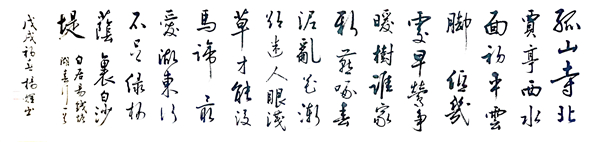 孤山寺北
賈亭西水
面初平雲
腳低幾
處早鶯爭
暖樹誰家
新燕啄春
泥亂花漸
欲迷人眼淺
草才能沒
馬蹄最
愛湖東行
不足綠楊
蔭裏白沙
堤
白居易錢塘
湖春行
戊戌初春楊書